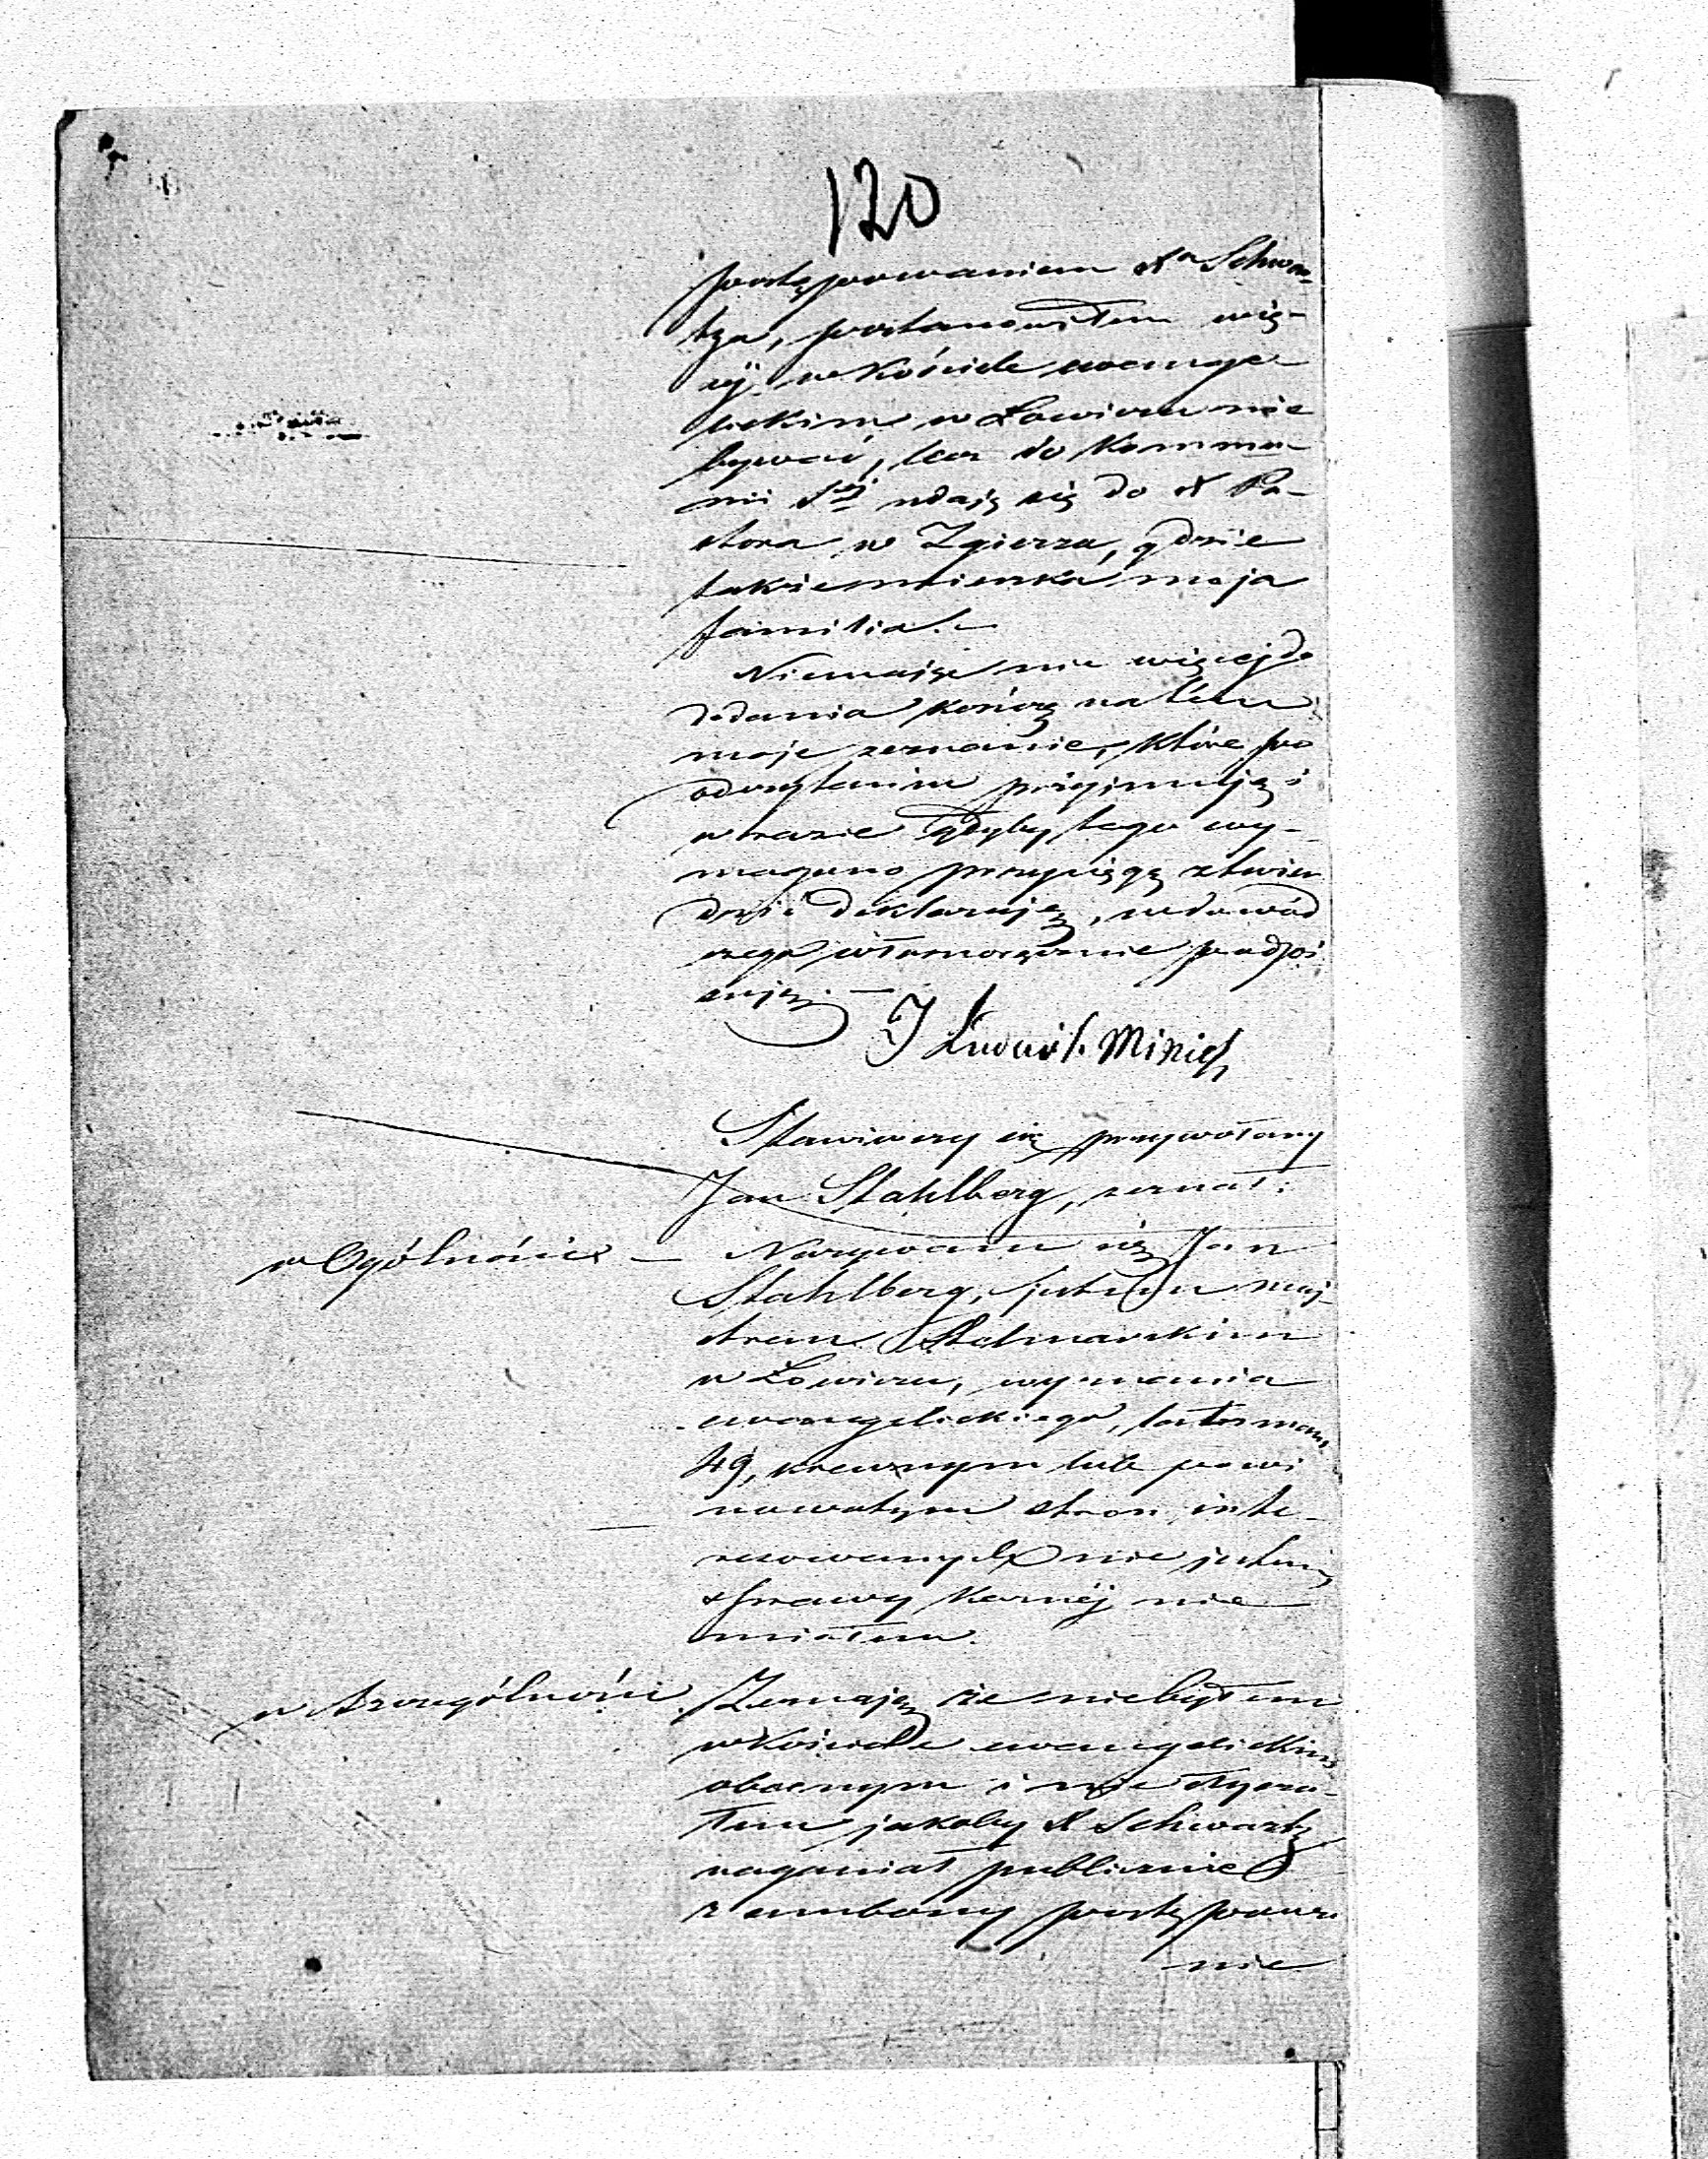 120
postępowaniem Xa Schwar-
tza, postanowiłem wię-
cej w Kościele ewange-
lickim w Łowiczu nie
bywać, lecz do Kommu-
nii Stej udaję się do X Pa-
stora w Zgierzu, gdzie
także mieszka moja
familia. —
Niemając nic więcej do
dodania kończę na tém
moje zeznanie, które po
odczytaniu przyjmuję i
w razie gdyby tego wy-
magano przysięgą stwier
dzić deklaruję, na dowód
czego własnoręcznie podpi
suję. —
J Ludwik Minich
Stawiwszy się przywołany
Jan Stahlberg, zeznał:
w Ogólności — Nazywam się Jan
Stahlberg, jestem maj-
strem Stelmarskim
w Łowiczu, wyznania
ewangelickiego, lat mam
49, krewnym lub powi
nowatym stron inte-
resowanych nie jestem,
sprawy Karnéj nie
miałem.
w Szczególności Zeznaję że niebyłem
w Kościele ewangelickim
obecnym i nie słysza-
łem jakoby X Schwartz
naganiał publicznie
z ambony postępowa
nie